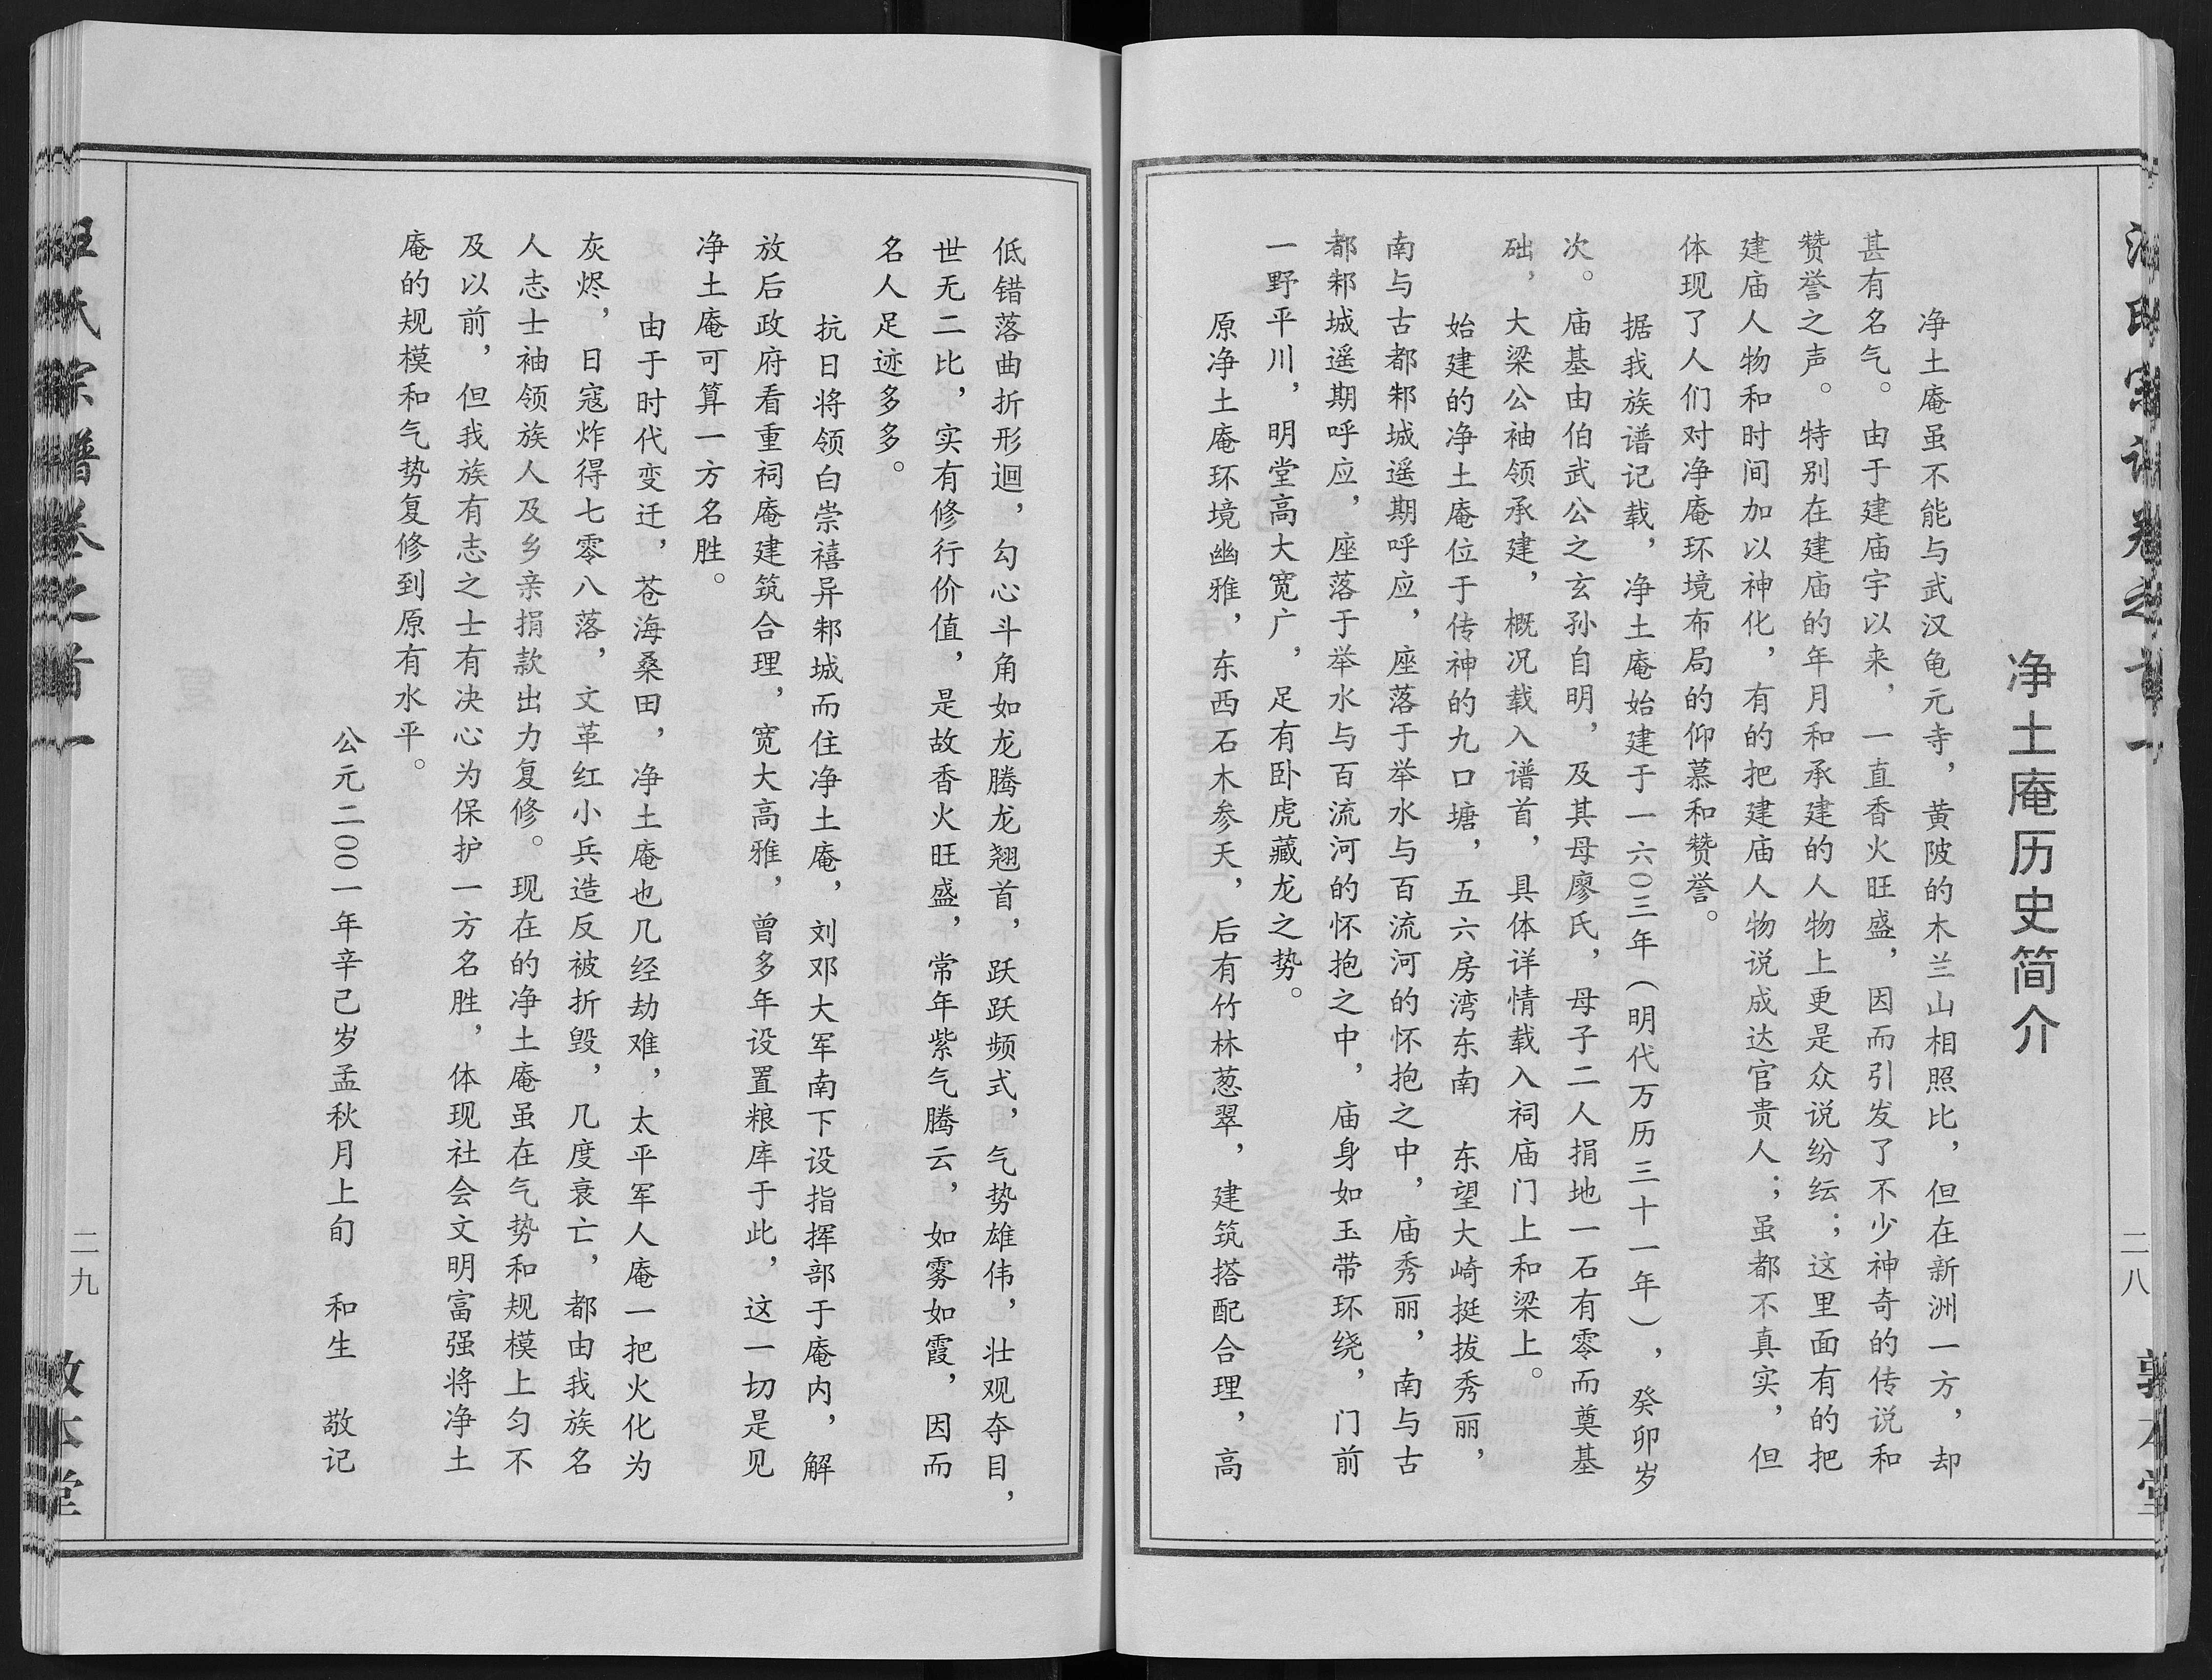 净土庵历史简介
净土庵虽不能与武汉龟元寺，黄陂的木兰山相照比，但在新洲一方，却
甚有名气。由于建庙宇以来，一直香火旺盛，因而引发了不少神奇的传说和
赞誉之声。特别在建庙的年月和承建的人物上更是众说纷纭；这里面有的把
建庙人物和时间加以神化，有的把建庙人物说成达官贵人；虽都不真实，但
体现了人们对净庵环境布局的仰慕和赞誉。
据我族谱记载，净土庵始建于一六〇三年（明代万历三十一年），癸卯岁
次。庙基由伯武公之玄孙自明，及其母廖氏，母子二人捐地一石有零而奠基
础，大梁公袖领承建，概况载入谱首，具体详情载入祠庙门上和梁上。
始建的净土庵位于传神的九口塘，五六房湾东南 东望大崎挺拔秀丽，
南与古都邾城遥期呼应，座落于举水与百流河的怀抱之中，庙秀丽，南与古
都邾城遥期呼应，座落于举水与百流河的怀抱之中，庙身如玉带环绕，门前
一野平川，明堂高大宽广，足有卧虎藏龙之势。
原净土庵环境幽雅，东西石木参天，后有竹林葱翠，建筑搭配合理，高
二八
低错落曲折形迴，勾心斗角如龙腾龙翘首，跃跃频式，气势雄伟，壮观夺目，
世无二比，实有修行价值，是故香火旺盛，常年紫气腾云，如雾如霞，因而
名人足迹多多。
抗日将领白崇禧异邾城而住净土庵，刘邓大军南下设指挥部于庵内，解
放后政府看重祠庵建筑合理，宽大高雅，曾多年设置粮库于此，这一切是见
净土庵可算一方名胜。
由于时代变迁，苍海桑田，净土庵也几经劫难，太平军人庵一把火化为
灰烬，日寇炸得七零八落，文革红小兵造反被折毁，几度衰亡，都由我族名
人志士袖领族人及乡亲捐款出力复修。现在的净土庵虽在气势和规模上匀不
及以前，但我族有志之士有决心为保护一方名胜，体现社会文明富强将净土
庵的规模和气势复修到原有水平。
公元二〇〇一年辛己岁孟秋月上旬 和生 敬记
二九